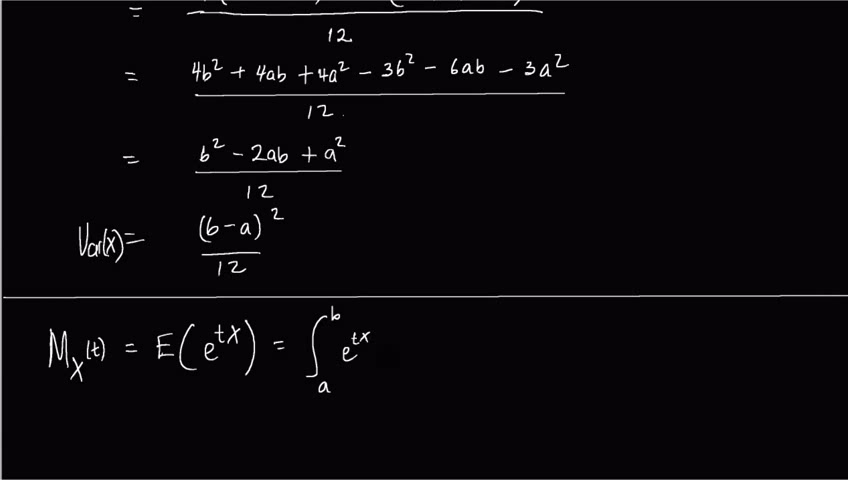 =
12
= 4b² + 4ab + 4a² - 3b² - 6ab - 3a²
12
= b² - 2ab + a²
12
Var(x) = (b-a)²
12
M_X(t) = E(e^{tX}) = ∫_a^b e^{tx}